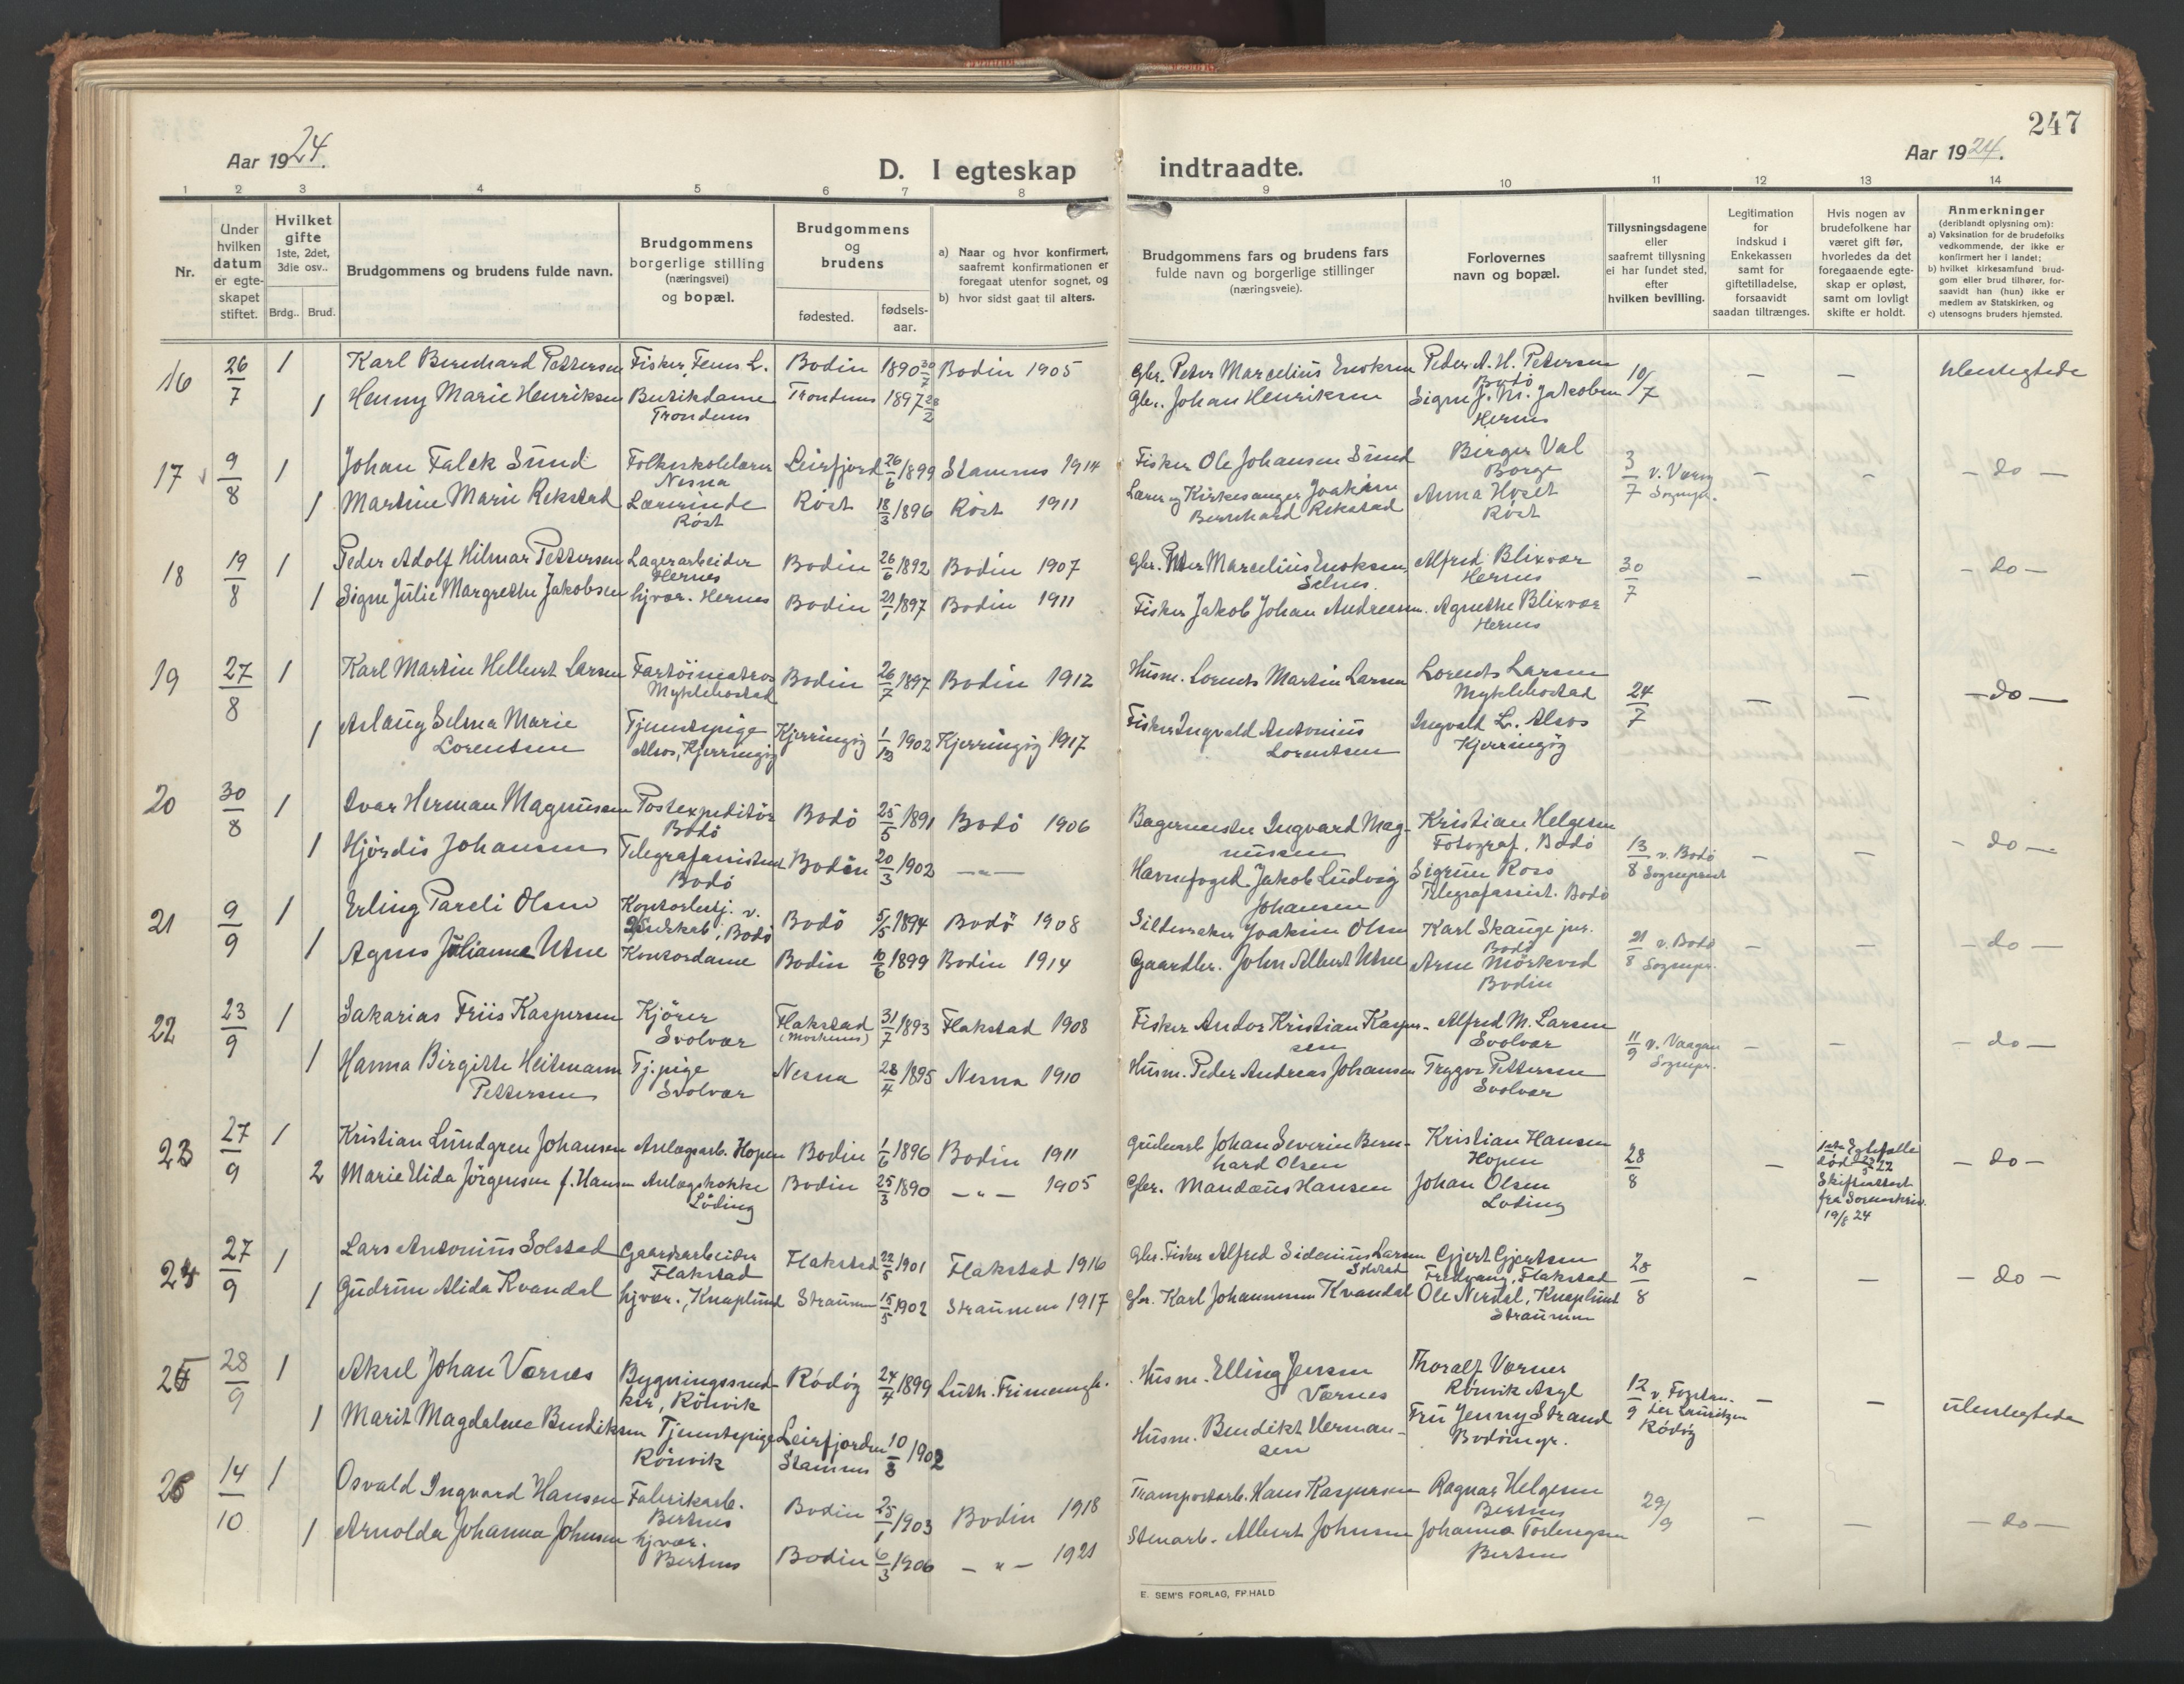 247
Aar 1924.
Aar 1924.
D. I egteskap indtraadte.
1 2 3 4 5 6 7 8 9 10 11 12 13 14
Nr.
Under hvilken datum er egteskapet stiftet.
Hvilket gifte 1ste, 2det, 3die osv..
Brdg.. Brud.
Brudgommens og brudens fulde navn.
Brudgommens borgerlige stilling (næringsvei) og bopæl.
Brudgommens og brudens
fødested.
fødselsaar.
a) Naar og hvor konfirmert, saafremt konfirmationen er foregaat utenfor sognet, og
b) hvor sidst gaat til alters.
Brudgommens fars og brudens fars fulde navn og borgerlige stillinger (næringsveie).
Forlovernes navn og bopæl.
Tillysningsdagene eller saafremt tillysning ei har fundet sted, efter hvilken bevilling.
Legitimation for indskud i Enkekassen samt for giftetilladelse, forsaavidt saadan tiltrænges.
Hvis nogen av brudefolkene har været gift før, hvorledes da det foregaaende egteskap er opløst, samt om lovligt skifte er holdt.
Anmerkninger (deriblandt oplysning om):
a) Vaksination for de brudefolks vedkommende, der ikke er konfirmert her i landet;
b) hvilket kirkesamfund brudgom eller brud tilhører, forsaavidt han (hun) ikke er medlem av Statskirken, og
c) utensogns bruders hjemsted.
16 26/7 1 Karl Bernhard Pettersen Fisker, Fenes L. Bodin 1890 30/7 Bodin 1905 Gbr. Peter Marcelius Enoksen Peder A. H. Petersen Bodö 10/7 — — ubeslegtede
1 Henny Marie Henriksen Butikdame Trondenes Trondenes 1897 28/2 Gbr. Johan Henriksen Signe J. M. Jakobsen Hernes
17 9/8 1 Johan Falck Sund Folkeskolelærer Nesna Leirfjord 26/6 1899 Stamnes 1914 Fisker Ole Johansen Sund Birger Val Borge 3/7 v. Værøy Sognepr. — — — do —
1 Martine Marie Rekstad Lærerinde Röst Röst 18/3 1896 Röst 1911 Lærer og Kirkesanger Joakim Bernhard Rekstad Anna Hoset Röst
18 19/8 1 Peder Adolf Hilmar Pettersen Lagerarbeider Hernes Bodin 26/6 1892 Bodin 1907 Gbr. Peter Marcelius Enoksen Seines Alfred Blixvær Hernes 30/7 — — — do —
1 Signe Julie Margrethe Jakobsen hjvær. Hernes Bodin 21/1 1897 Bodin 1911 Fisker Jakob Johan Andreassen. Agnethe Blixvær Hernes
19 27/8 1 Karl Martin Helbert Larsen Fartöimatros Myklebostad Bodin 26/7 1897 Bodin 1912 Husm. Lorents Martin Larsen Lorents Larsen Myklebostad 24/7 — — — do —
1 Aslaug Selma Marie Lorentsen Tjenestepige Alsos, Kjerringöy Kjerringöy 1/12 1902 Kjerringöy 1917 Fisker Ingvald Antonius Lorentsen Ingvald L. Alsos Kjerringöy
20 30/8 1 Ivar Herman Magnussen Postexpeditör Bodö Bodö 25/5 1891 Bodö 1906 Bagermester Ingvard Magnussen Kristian Helgesen Fotograf, Bodö 13/8 v. Bodö Sogneprest — — — do —
1 Hjördis Johansen Telegrafassistent Bodö Bodin 20/3 1902 — " — Havnefoged Jakob Ludvig Johansen Sigrun Ross Telegrafassist. Bodö
21 9/9 1 Erling Pareli Olsen Kontorbestj. v. Bodö Bodö 5/5 1894 Bodö 1908 Sildevraker Joakim Olsen Karl Skauge jnr. Bodö 21/8 v. Bodö Sognepr. — — — do —
1 Agnes Julianne Utne Kontordame Bodin 10/6 1899 Bodin 1914 Gaardbr. John Albert Utne Arne Mörkved Bodin
22 23/9 1 Sakarias Friis Kaspersen Kjörer Svolvær Flakstad (Moskenes) 31/7 1893 Flakstad 1908 Fisker Andor Kristian Kaspersen Alfred M. Larsen Svolvær 11/9 v. Vaagan Sognepr. — — — do —
1 Hanna Birgitte Heitmann Pettersen Tj.pige Svolvær Nesna 28/4 1895 Nesna 1910 Husm. Peder Andreas Johansen Trygve Pettersen Svolvær
23 27/9 1 Kristian Lundgren Johansen Anlægsarb. Hopen Bodin 1/6 1896 Bodin 1911 Johan Severin Bernhard Olsen Kristian Hansen Hopen 28/8 — 1ste Egtefælle död 22 Skifteattest fra Sorenskriv. 19/8 24 — do —
2 Marie Elida Jörgensen f. Hansen Anlægskokke Löding Bodin 25/3 1890 — " — 1905 Gbr. Mandæus Hansen Johan Olsen Löding
24 27/9 1 Lars Antonius Solstad Gaardsarbeider Flakstad Flakstad 22/5 1901 Flakstad 1916 Gbr. Fisker Alfred Sidenius Larsen Solstad Gjert Gjertsen Fredvang, Flakstad 28/8 — — — do —
1 Gudrun Alida Kvandal hjvær., Knaplund Straumen 15/5 1902 Straumen 1917 Gbr. Karl Johannessen Kvandal Ole Nerdal, Knaplund Straumen
25 28/9 1 Aksel Johan Værnes Bygningssnedker, Rönvik Rödöy 24/7 1899 Luth. Frimenigh. Husm. Elling Jensen Værnes Thoralf Værnes Rönvik Asyl 12/9 v. Forstander Lauritzen Rödöy — — ubeslegtede
1 Marit Magdalene Bendiksen Tjenestepige Rönvik Leirfjorden Stamnes 10/8 1902 Husm. Bendikt Hermansen Fru Jenny Strand Bodöingr.
26 14/10 1 Osvald Ingvard Hansen Fabrikarb. Bertnes Bodin 25/1 1903 Bodin 1918 Transportarb. Hans Kaspersen Ragnar Helgesen Bertnes 29/9 — — — do —
1 Arnolda Johanna Johnsen hjvær. Bertnes Bodin 6/3 1906 — " — 1921 Stenarb. Albert Johnsen Johanna Torbergsen Bertnes
E. SEM'S FORLAG, FP.HALD